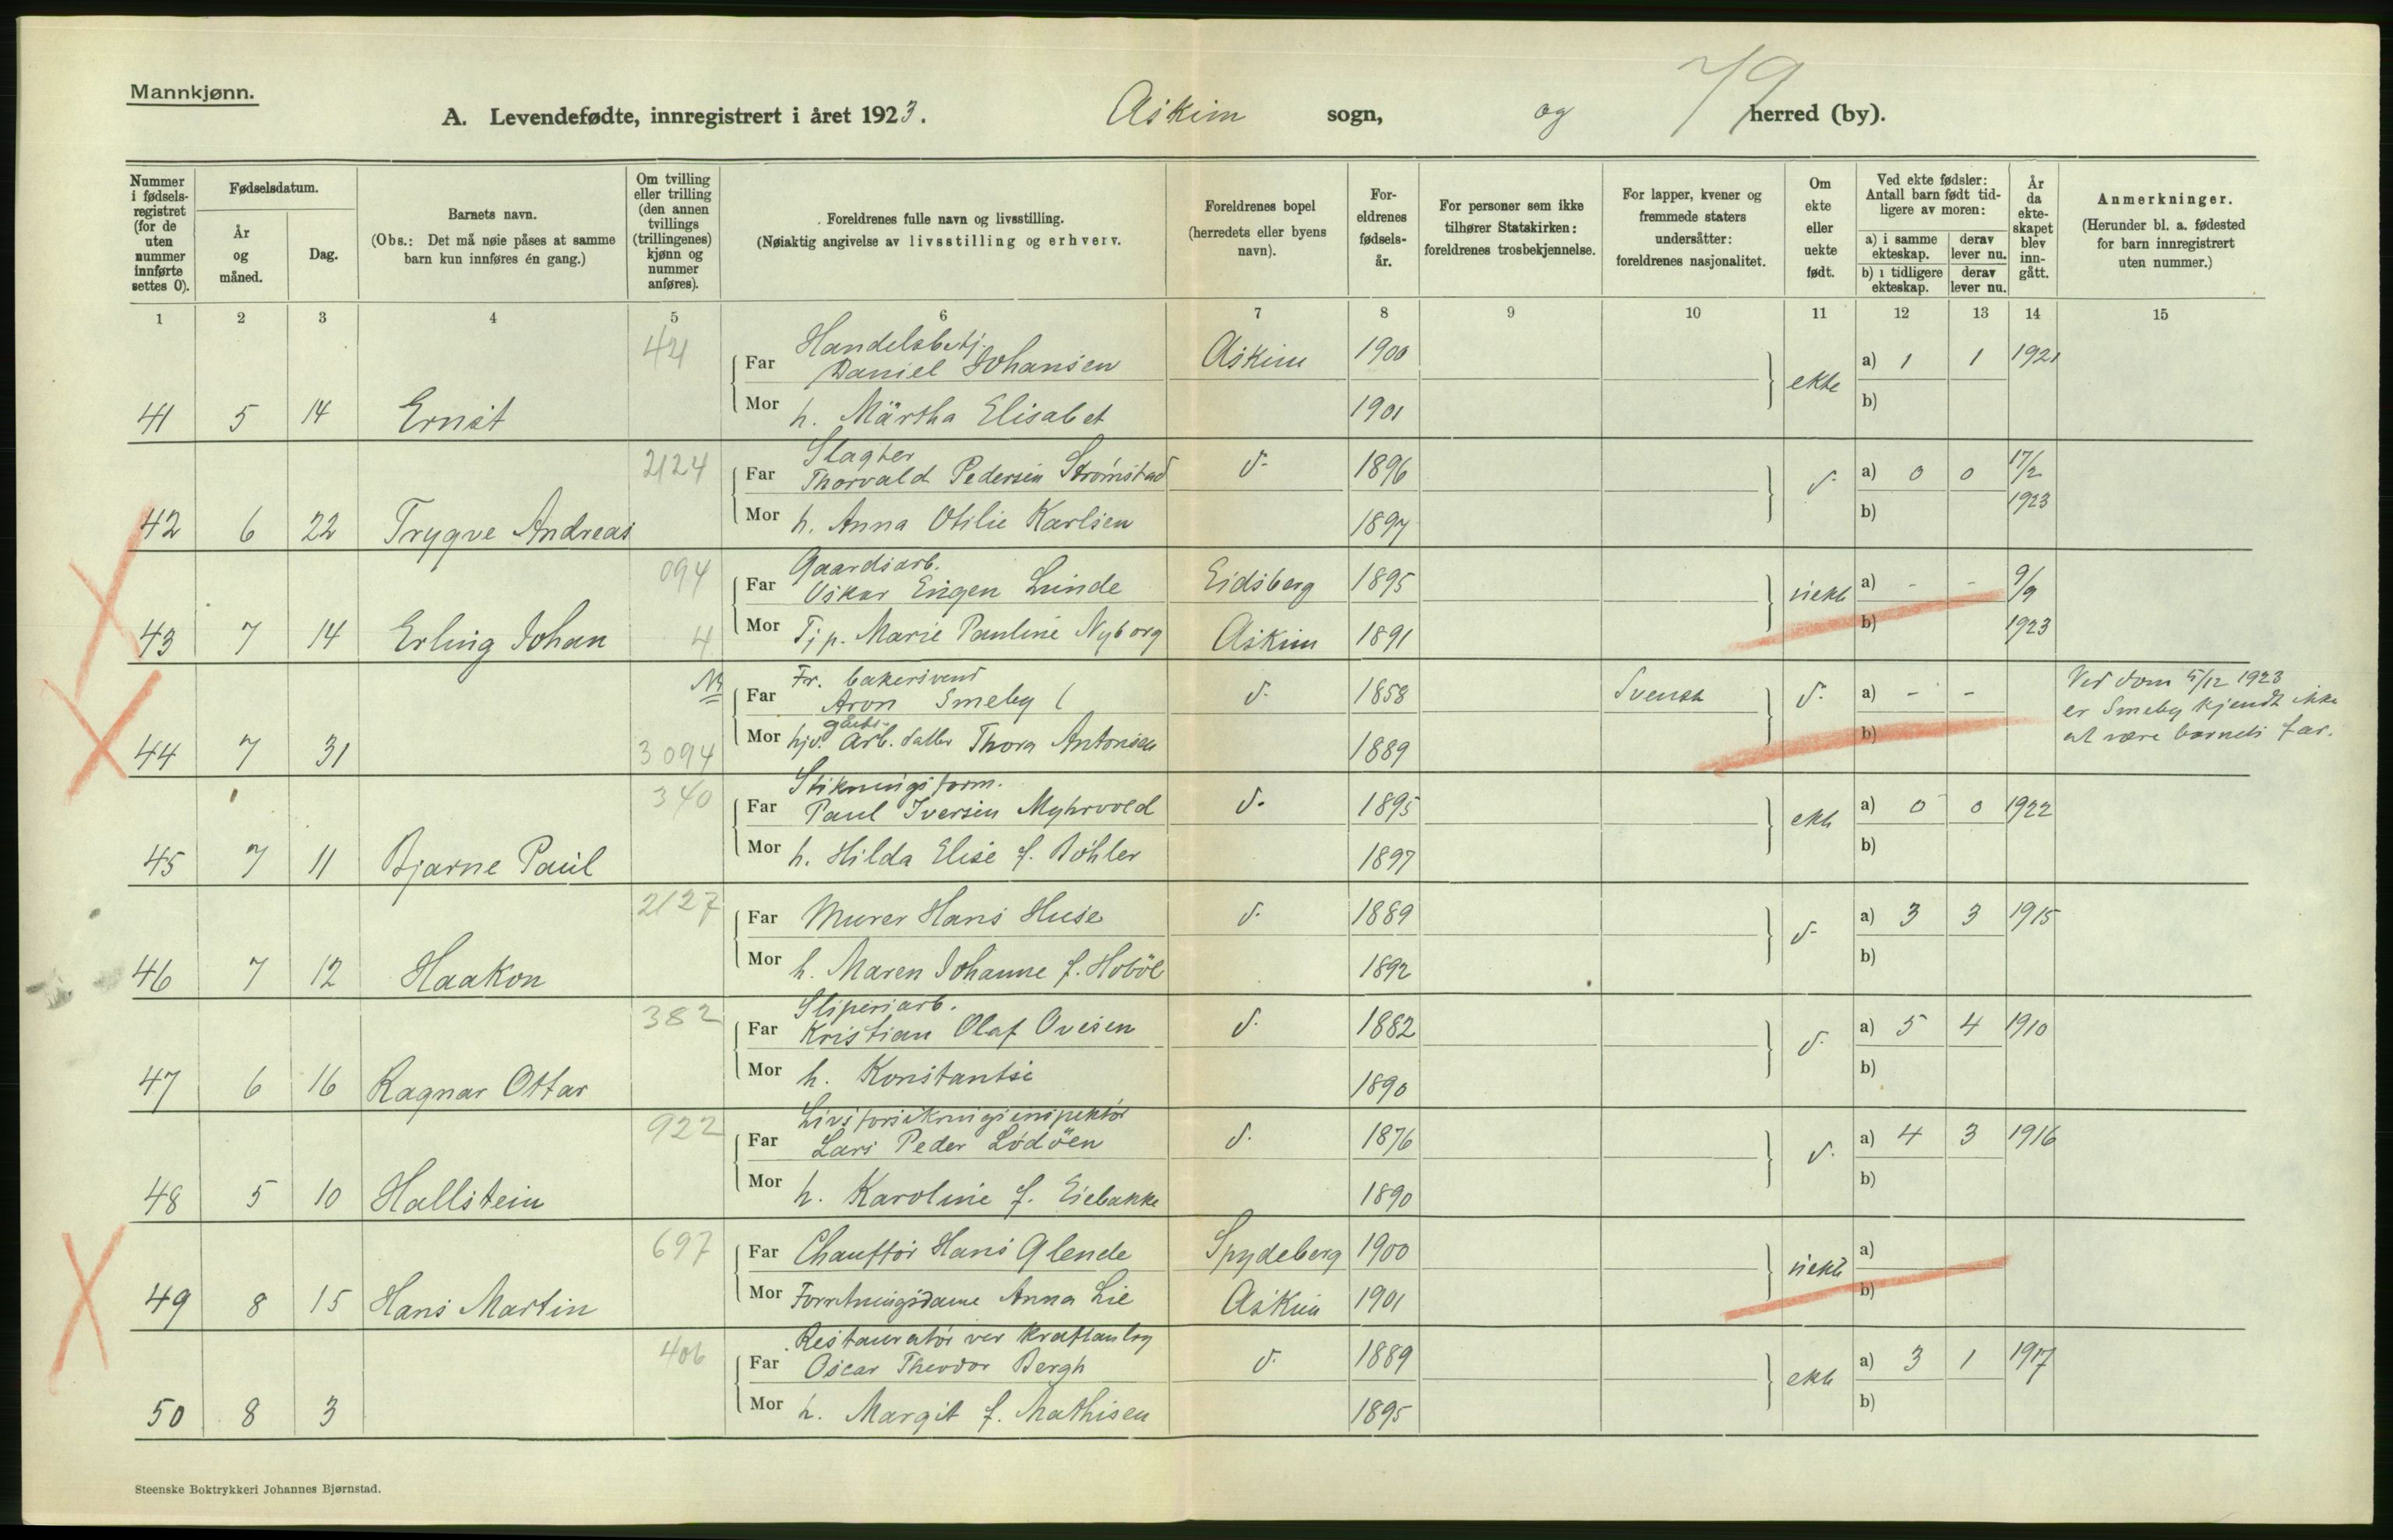 Mannkjønn.
A. Levendefødte, innregistrert i året 1923. Askim sogn, og herred (by).
79
Nummer i fødselsregistret (for de uten nummer innførte settes 0).
Fødselsdatum.
År og måned.
Dag.
Barnets navn.
(Obs.: Det må nøie påses at samme barn kun innføres én gang.)
Om tvilling eller trilling (den annen tvillings (trillingenes) kjønn og nummer anføres).
Foreldrenes fulle navn og livsstilling.
(Nøiaktig angivelse av livsstilling og erhverv.
Foreldrenes bopel (herredets eller byens navn).
Foreldrenes fødselsår.
For personer som ikke tilhører Statskirken: foreldrenes trosbekjennelse.
For lapper, kvener og fremmede staters undersåtter: foreldrenes nasjonalitet.
Om ekte eller uekte født.
Ved ekte fødsler: Antall barn født tidligere av moren:
a) i samme ekteskap. derav lever nu.
b) i tidligere ekteskap. derav lever nu.
År da ekteskapet blev inngått.
Anmerkninger.
(Herunder bl. a. fødested for barn innregistrert uten nummer.)
1 2 3 4 5 6 7 8 9 10 11 12 13 14 15
Handelsbetj.
Far Daniel Johansen Askim 1900 a) 1 1 1921
41 5 14 Ernst Mor h. Märtha Elisabet 1901 ekte b)
2124 Slagter
Far Thorvald Pedersen Strømstad d- 1896 d- a) 0 0 17/2 1923
42 6 22 Trygve Andreas Mor h. Anna Otilie Karlsen 1897 b)
094 Gaardsarb.
Far Oskar Eugen Lunde Eidsberg 1895 uekte a) - - 9/9 1923
43 7 14 Erling Johan 4 Mor Tjp. Marie Pauline Nyborg Askim 1891 b)
Fr. bakersvend
Far Aron Smeby ( d- 1858 Svensk d- a) - -
Ved dom 5/12 1923
er Smeby kjendt ikke
at være barnets far.
44 7 31 3 094 Mor hjv. gårds-arb. datter Thora Antonsen 1889 b)
340 Stikningsform.
Far Paul Iversen Myhrvold d- 1895 ekte a) 0 0 1922
45 7 11 Bjarne Paul Mor h. Hilda Elise f. Böhler 1897 b)
2127 Far Murer Hans Huse d- 1889 d- a) 3 3 1915
46 7 12 Haakon Mor h. Maren Johanne f. Hoböl 1892 b)
382 Sliperiarb.
Far Kristian Olaf Ovesen d- 1882 d- a) 5 4 1910
47 6 16 Ragnar Ottar Mor h. Konstantse 1890 b)
922 Livsforsikringsinspektör
Far Lars Peder Lödöen d- 1876 d- a) 4 3 1916
48 5 10 Hallstein Mor h. Karoline f. Eiebakke 1890 b)
697 Far Chaufför Hans Glende Spydeberg 1900 uekte a)
49 8 15 Hans Martin Mor Forretningsdame Anna Lie Askim 1901 b)
406 Restauratör ved Kraftanleg
Far Oscar Theodor Bergh d- 1889 ekte a) 3 1 1917
50 8 3 Mor h. Margit f. Mathisen 1895 b)
Steenske Boktrykkeri Johannes Bjørnstad.